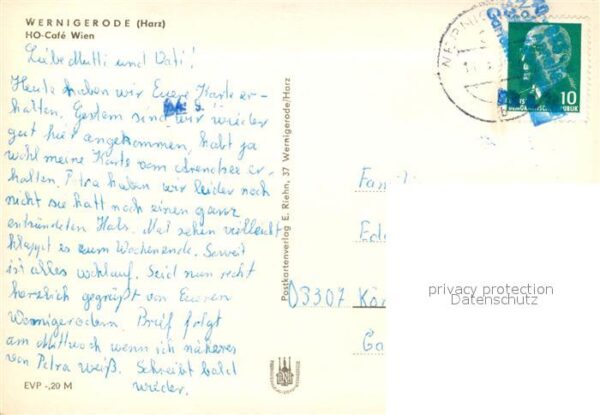 WERNIGERODE (Harz)
HO-Café Wien
Liebe Mutti und Vati!
Heute haben wir Eure Karte er-
halten. Gestern sind wir wieder
gut hier angekommen, habt ja
wohl meine Karte vom er-
halten. Petra haben wir leider noch
nicht sie hatt noch einen ganz
entzündeten Hals. Mal sehen vielleicht
klappt es zum Wochenende. Soweit
ist alles wohlauf. Seid nun recht
herzlich gegrüßt von Euren
Wernigerodern. Brief folgt
am Mittwoch wenn ich näheres
von Petra weiß. Schreibt bald
wieder.
EVP -,20 M
Postkartenverlag E. Riehn, 37 Wernigerode/Harz
10
DEMOKRATISCHE REPUBLIK
Fam
03307 Kö
privacy protection
Datenschutz